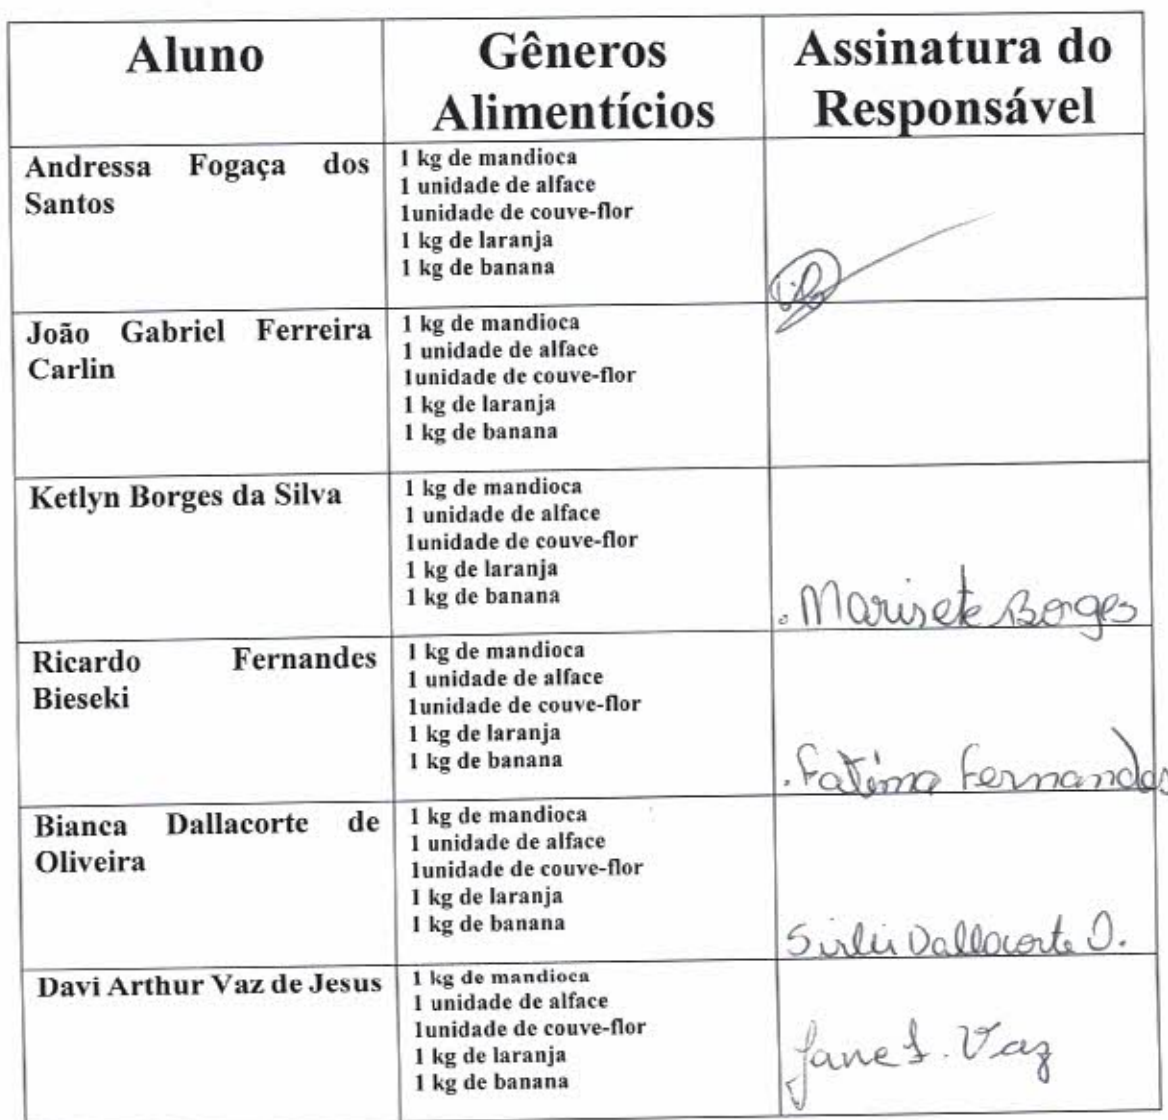 Aluno
Gêneros
Alimentícios
Assinatura do
Responsável
Andressa Fogaça dos
Santos
1 kg de mandioca
1 unidade de alface
1unidade de couve-flor
1 kg de laranja
1 kg de banana
João Gabriel Ferreira
Carlin
1 kg de mandioca
1 unidade de alface
1unidade de couve-flor
1 kg de laranja
1 kg de banana
Ketlyn Borges da Silva
1 kg de mandioca
1 unidade de alface
1unidade de couve-flor
1 kg de laranja
1 kg de banana
. Marisete Borges
Ricardo Fernandes
Bieseki
1 kg de mandioca
1 unidade de alface
1unidade de couve-flor
1 kg de laranja
1 kg de banana
. Fatima Fernandes
Bianca Dallacorte de
Oliveira
1 kg de mandioca
1 unidade de alface
1unidade de couve-flor
1 kg de laranja
1 kg de banana
Sirlei Dallacorte O.
Davi Arthur Vaz de Jesus
1 kg de mandioca
1 unidade de alface
1unidade de couve-flor
1 kg de laranja
1 kg de banana
Jane L. Vaz